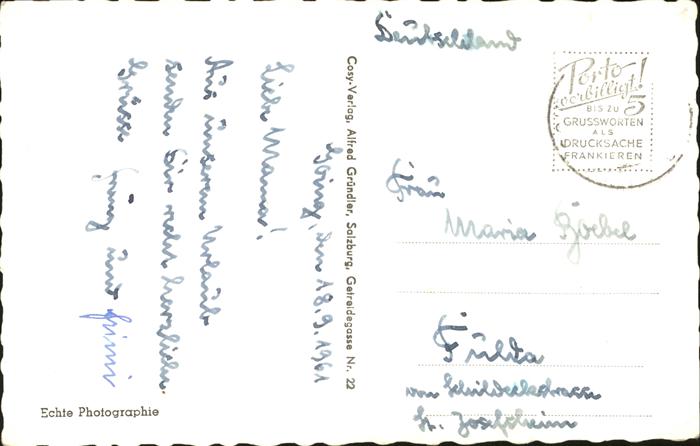 Going, den 18.9.1961
Liebe Mama!
Aus unserem Urlaub
senden Dir recht herzliche
Grüsse und
Cosy-Verlag, Alfred Gründler, Salzburg, Getreidegasse Nr. 22
Echte Photographie
Deutschland
Porto
verbilligt!
BIS ZU 5
GRUSSWORTEN
ALS
DRUCKSACHE
FRANKIEREN
Frau
Maria Goebel
Fulda
von Schildeckstrasse
St. Josefsheim